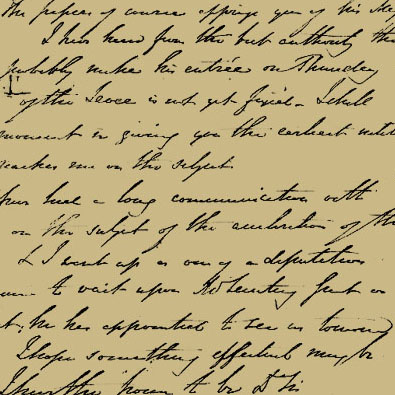 the papers of course apprize you of his
I have heard from the best authority
probably make his entrée on Thursday
of the Peace is not yet fixed -
moment in giving you the earliest
reaches me on the subject
have had a long communication with
on the subject of the of the
I went up as one of a deputation
to wait upon
he has appointed to see us
I hope something effectual may be
I have the honor to be Dr Sir